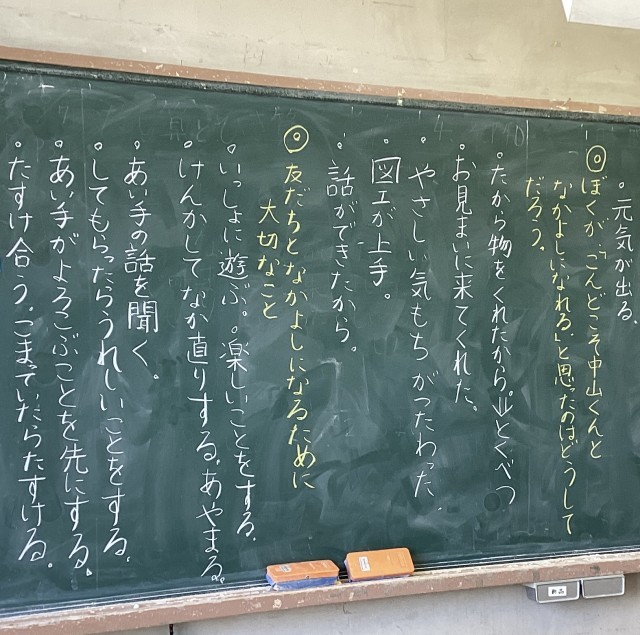 。元気が出る。
◎ぼくが、「こんどこそ中山くんと
なかよしになれる。」と思ったのはどうして
だろう。
。たから物をくれたから。⇒とくべつ
。お見まいに来てくれた。
。やさしい気もちがつたわった。
。図工が上手。
。話ができたから。
◎友だちとなかよしになるために
大切なこと
。いっしょに遊ぶ。。楽しいことをする。
。けんかしてなか直りする。あやまる。
。あい手の話を聞く。
。してもらったらうれしいことをする。
。あい手がよろこぶことを先にする。
。たすけ合う。こまっていたらたすける。